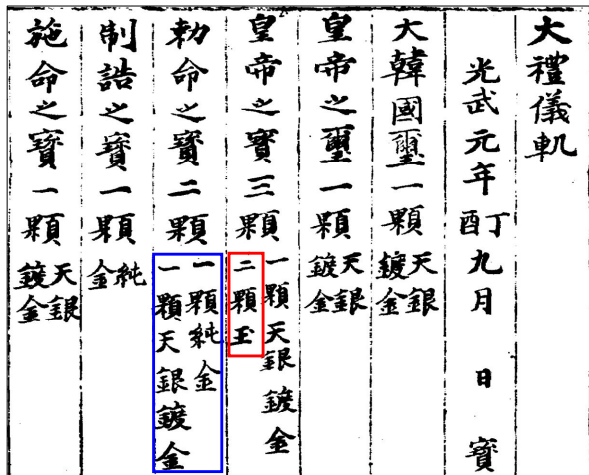 大禮儀軌
光武元年丁酉九月 日 寶
大韓國璽一顆天銀鍍金
皇帝之璽一顆天銀鍍金
皇帝之寶三顆一顆天銀鍍金二顆玉
勅命之寶二顆一顆純金一顆天銀鍍金
制誥之寶一顆純金
施命之寶一顆天銀鍍金